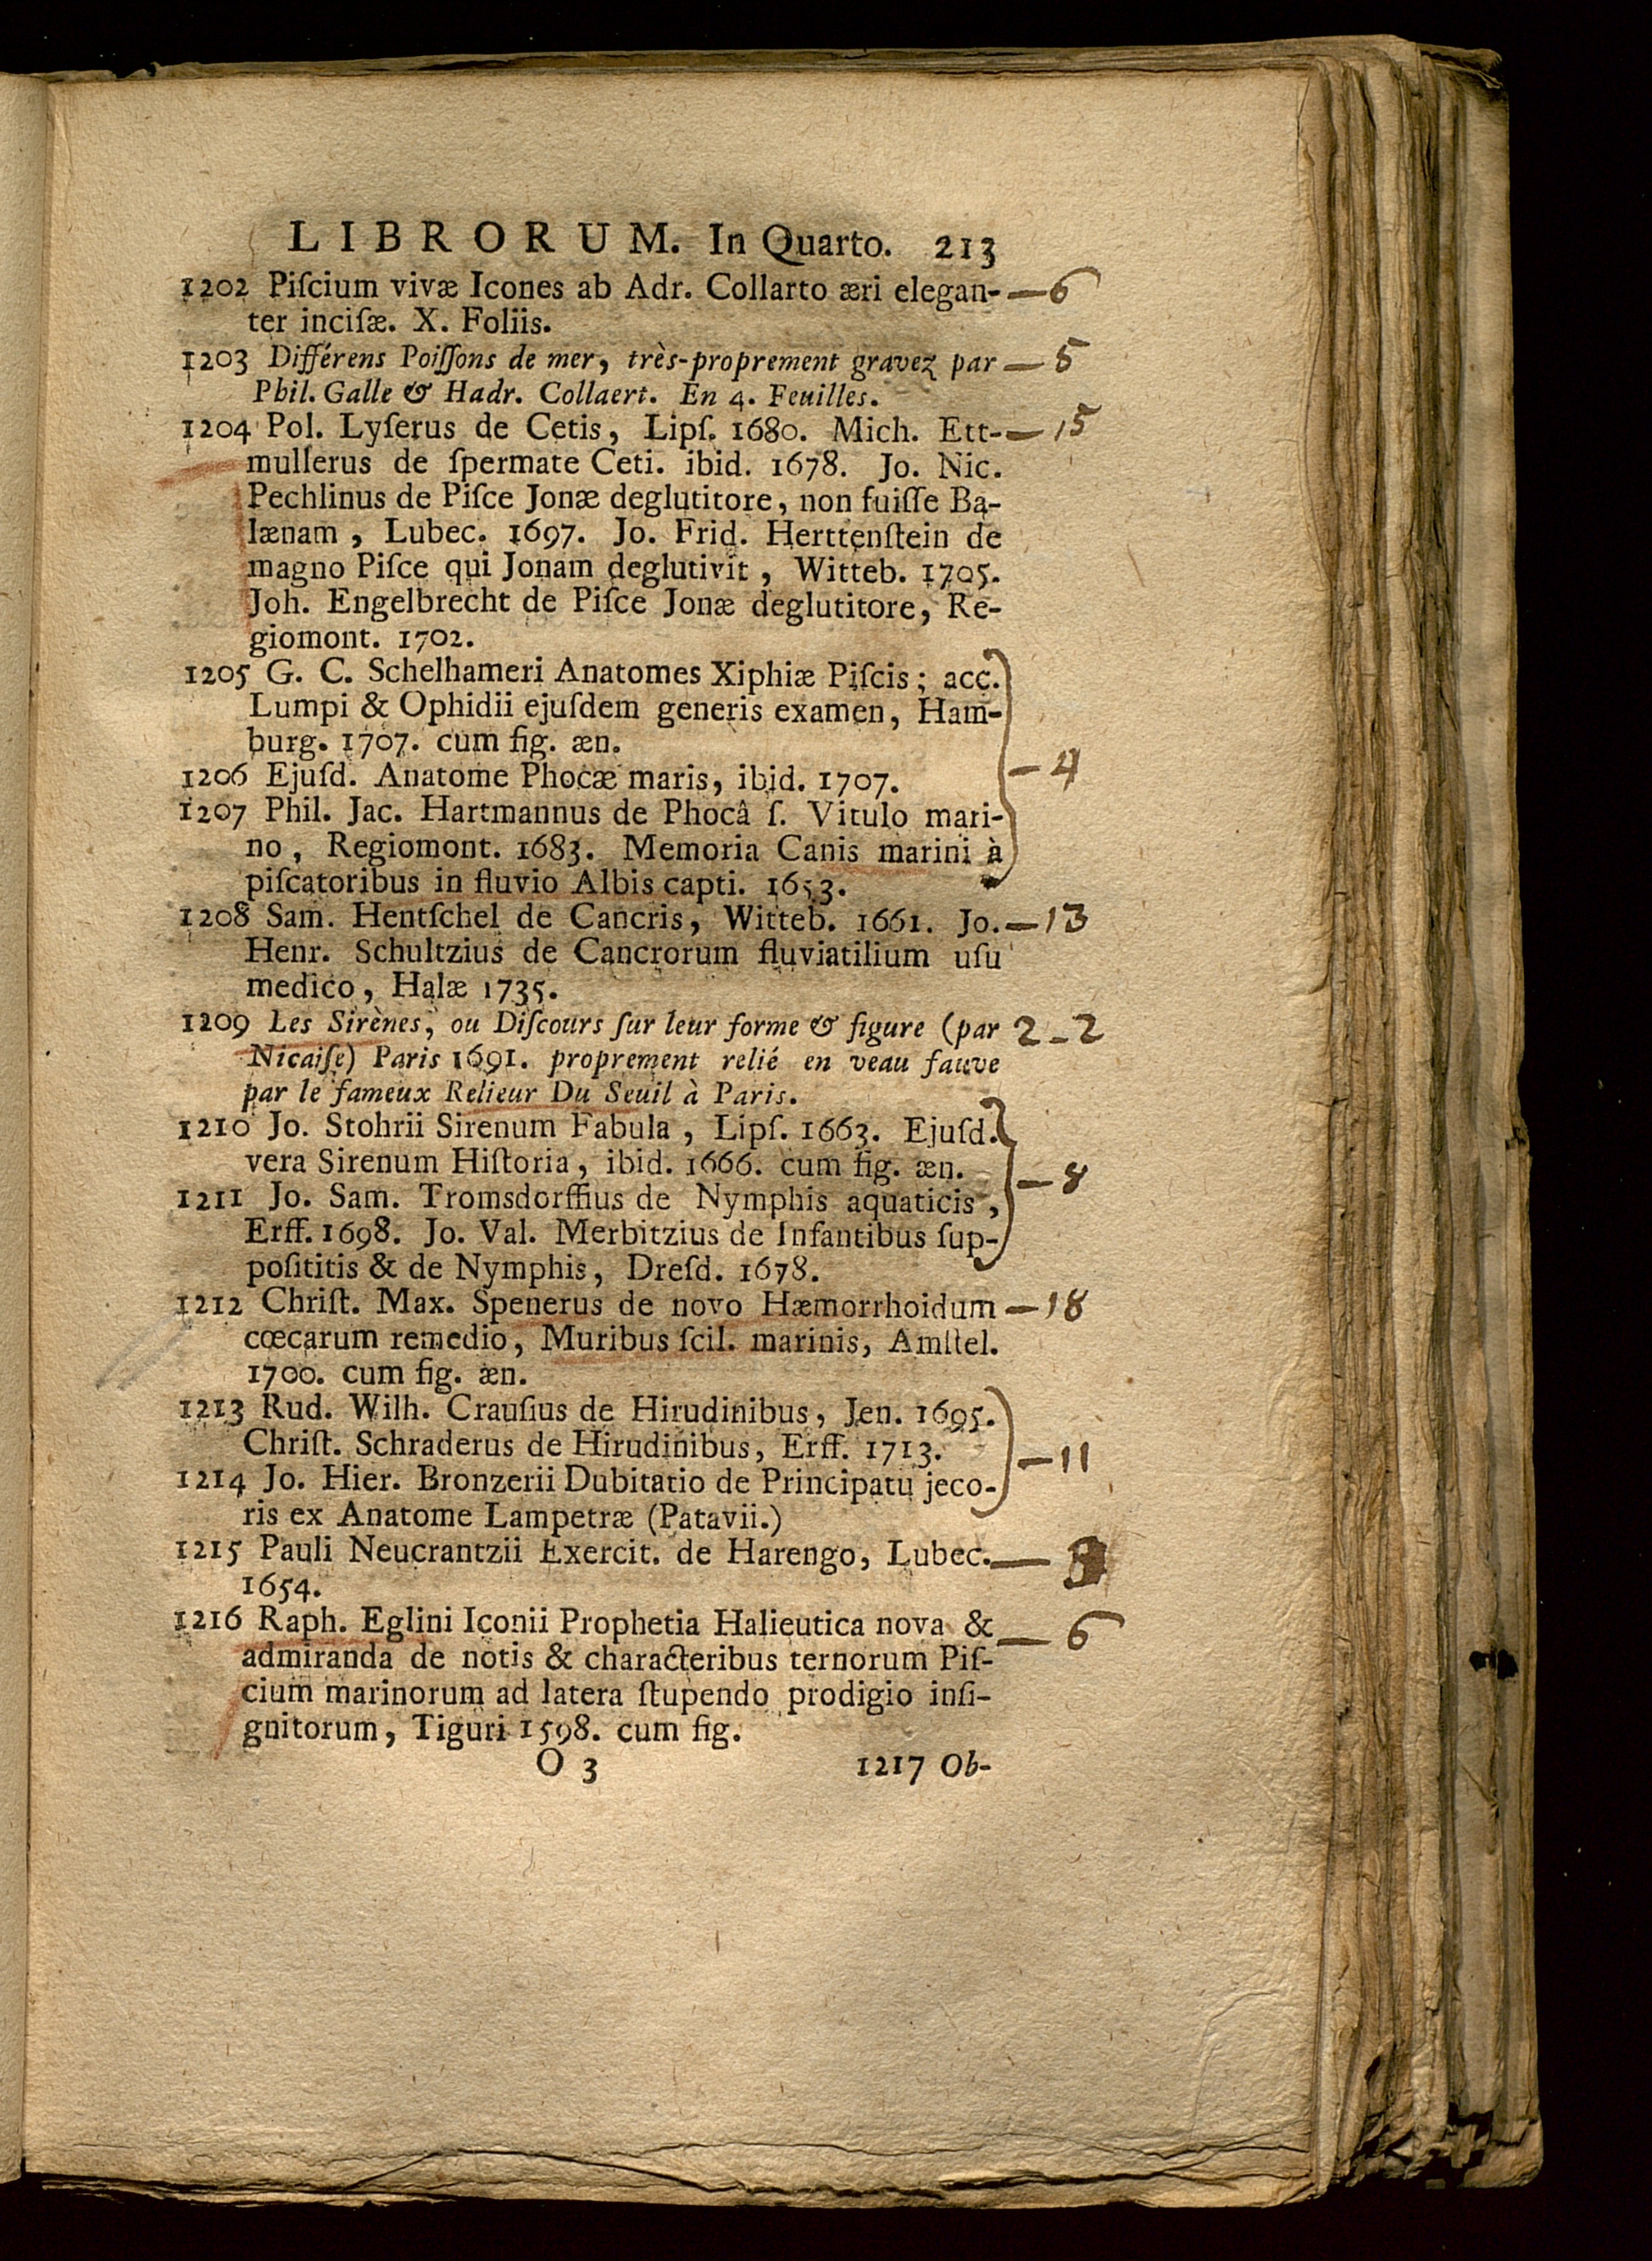 LIBRORUM. In Quarto. 213
1202 Piſcium vivæ Icones ab Adr. Collarto æri elegan- — 6
ter inciſæ. X. Foliis.
1203 Différens Poiſſons de mer, très-proprement gravez par — 5
Phil. Galle & Hadr. Collaert. En 4. Feuilles.
1204 Pol. Lyſerus de Cetis, Lipſ. 1680. Mich. Ett- — 15
mullerus de ſpermate Ceti. ibid. 1678. Jo. Nic.
Pechlinus de Piſce Jonæ deglutitore, non fuiſſe Ba-
lænam, Lubec. 1697. Jo. Frid. Herttenſtein de
magno Piſce qui Jonam deglutivit, Witteb. 1705.
Joh. Engelbrecht de Piſce Jonæ deglutitore, Re-
giomont. 1702.
1205 G. C. Schelhameri Anatomes Xiphiæ Piſcis; acc.
Lumpi & Ophidii ejuſdem generis examen, Ham-
burg. 1707. cum fig. æn.
1206 Ejuſd. Anatome Phocæ maris, ibid. 1707. — 4
1207 Phil. Jac. Hartmannus de Phocâ ſ. Vitulo mari-
no, Regiomont. 1683. Memoria Canis marini à
piſcatoribus in fluvio Albis capti. 1653.
1208 Sam. Hentſchel de Cancris, Witteb. 1661. Jo. — 13
Henr. Schultzius de Cancrorum fluviatilium uſu
medico, Halæ 1735.
1209 Les Sirènes, ou Diſcours ſur leur forme & figure (par 2 - 2
Nicaiſe) Paris 1691. proprement relié en veau fauve
par le fameux Relieur Du Seuil à Paris.
1210 Jo. Stohrii Sirenum Fabula, Lipſ. 1663. Ejuſd.
vera Sirenum Hiſtoria, ibid. 1666. cum fig. æn. — 8
1211 Jo. Sam. Tromsdorffius de Nymphis aquaticis,
Erff. 1698. Jo. Val. Merbitzius de Infantibus ſup-
poſititis & de Nymphis, Dreſd. 1678.
1212 Chriſt. Max. Spenerus de novo Hæmorrhoidum — 18
cœcarum remedio, Muribus ſcil. marinis, Amſtel.
1700. cum fig. æn.
1213 Rud. Wilh. Crauſius de Hirudinibus, Jen. 1695.
Chriſt. Schraderus de Hirudinibus, Erff. 1713. — 11
1214 Jo. Hier. Bronzerii Dubitatio de Principatu jeco-
ris ex Anatome Lampetræ (Patavii.)
1215 Pauli Neucrantzii Exercit. de Harengo, Lubec. —
1654.
1216 Raph. Eglini Iconii Prophetia Halieutica nova & — 6
admiranda de notis & characteribus ternorum Piſ-
cium marinorum ad latera ſtupendo prodigio inſi-
gnitorum, Tiguri 1598. cum fig.
O 3 1217 Ob-